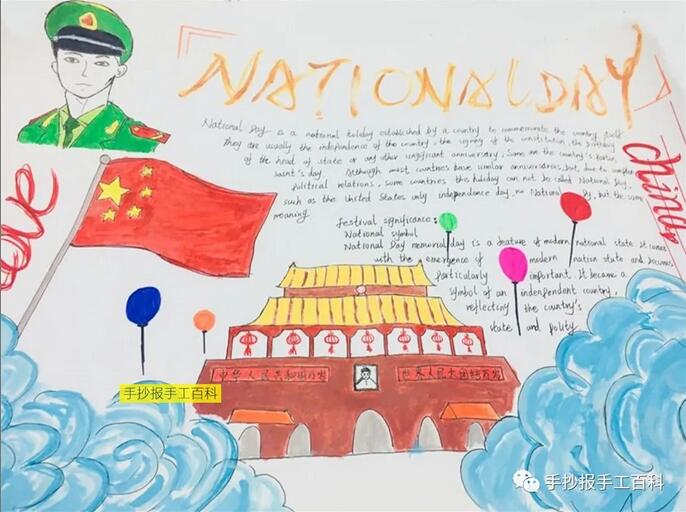 NATIONALDAY
National Day is a national holiday established by a country to commemorate the country itself
They are usually the independence of the country, the signing of the constitution, the birthday
of the head of state or any other significant anniversary, Some are the country's patron
saint's day. Although most countries have similar anniversaries, but due to complex
Political relations, some countries this holiday can not be called National Day,
such as the United States only independence day, no National Day, but the same
meaning.
festival significance:
National symbol
National Day memorial day is a feature of modern national state. It comes
with the emergence of modern nation state and becomes
particularly important. It became a
symbol of an independent country,
reflecting the country's
state and polity
Love
china
中华人民共和国万岁
世界人民大团结万岁
手抄报手工百科
手抄报手工百科